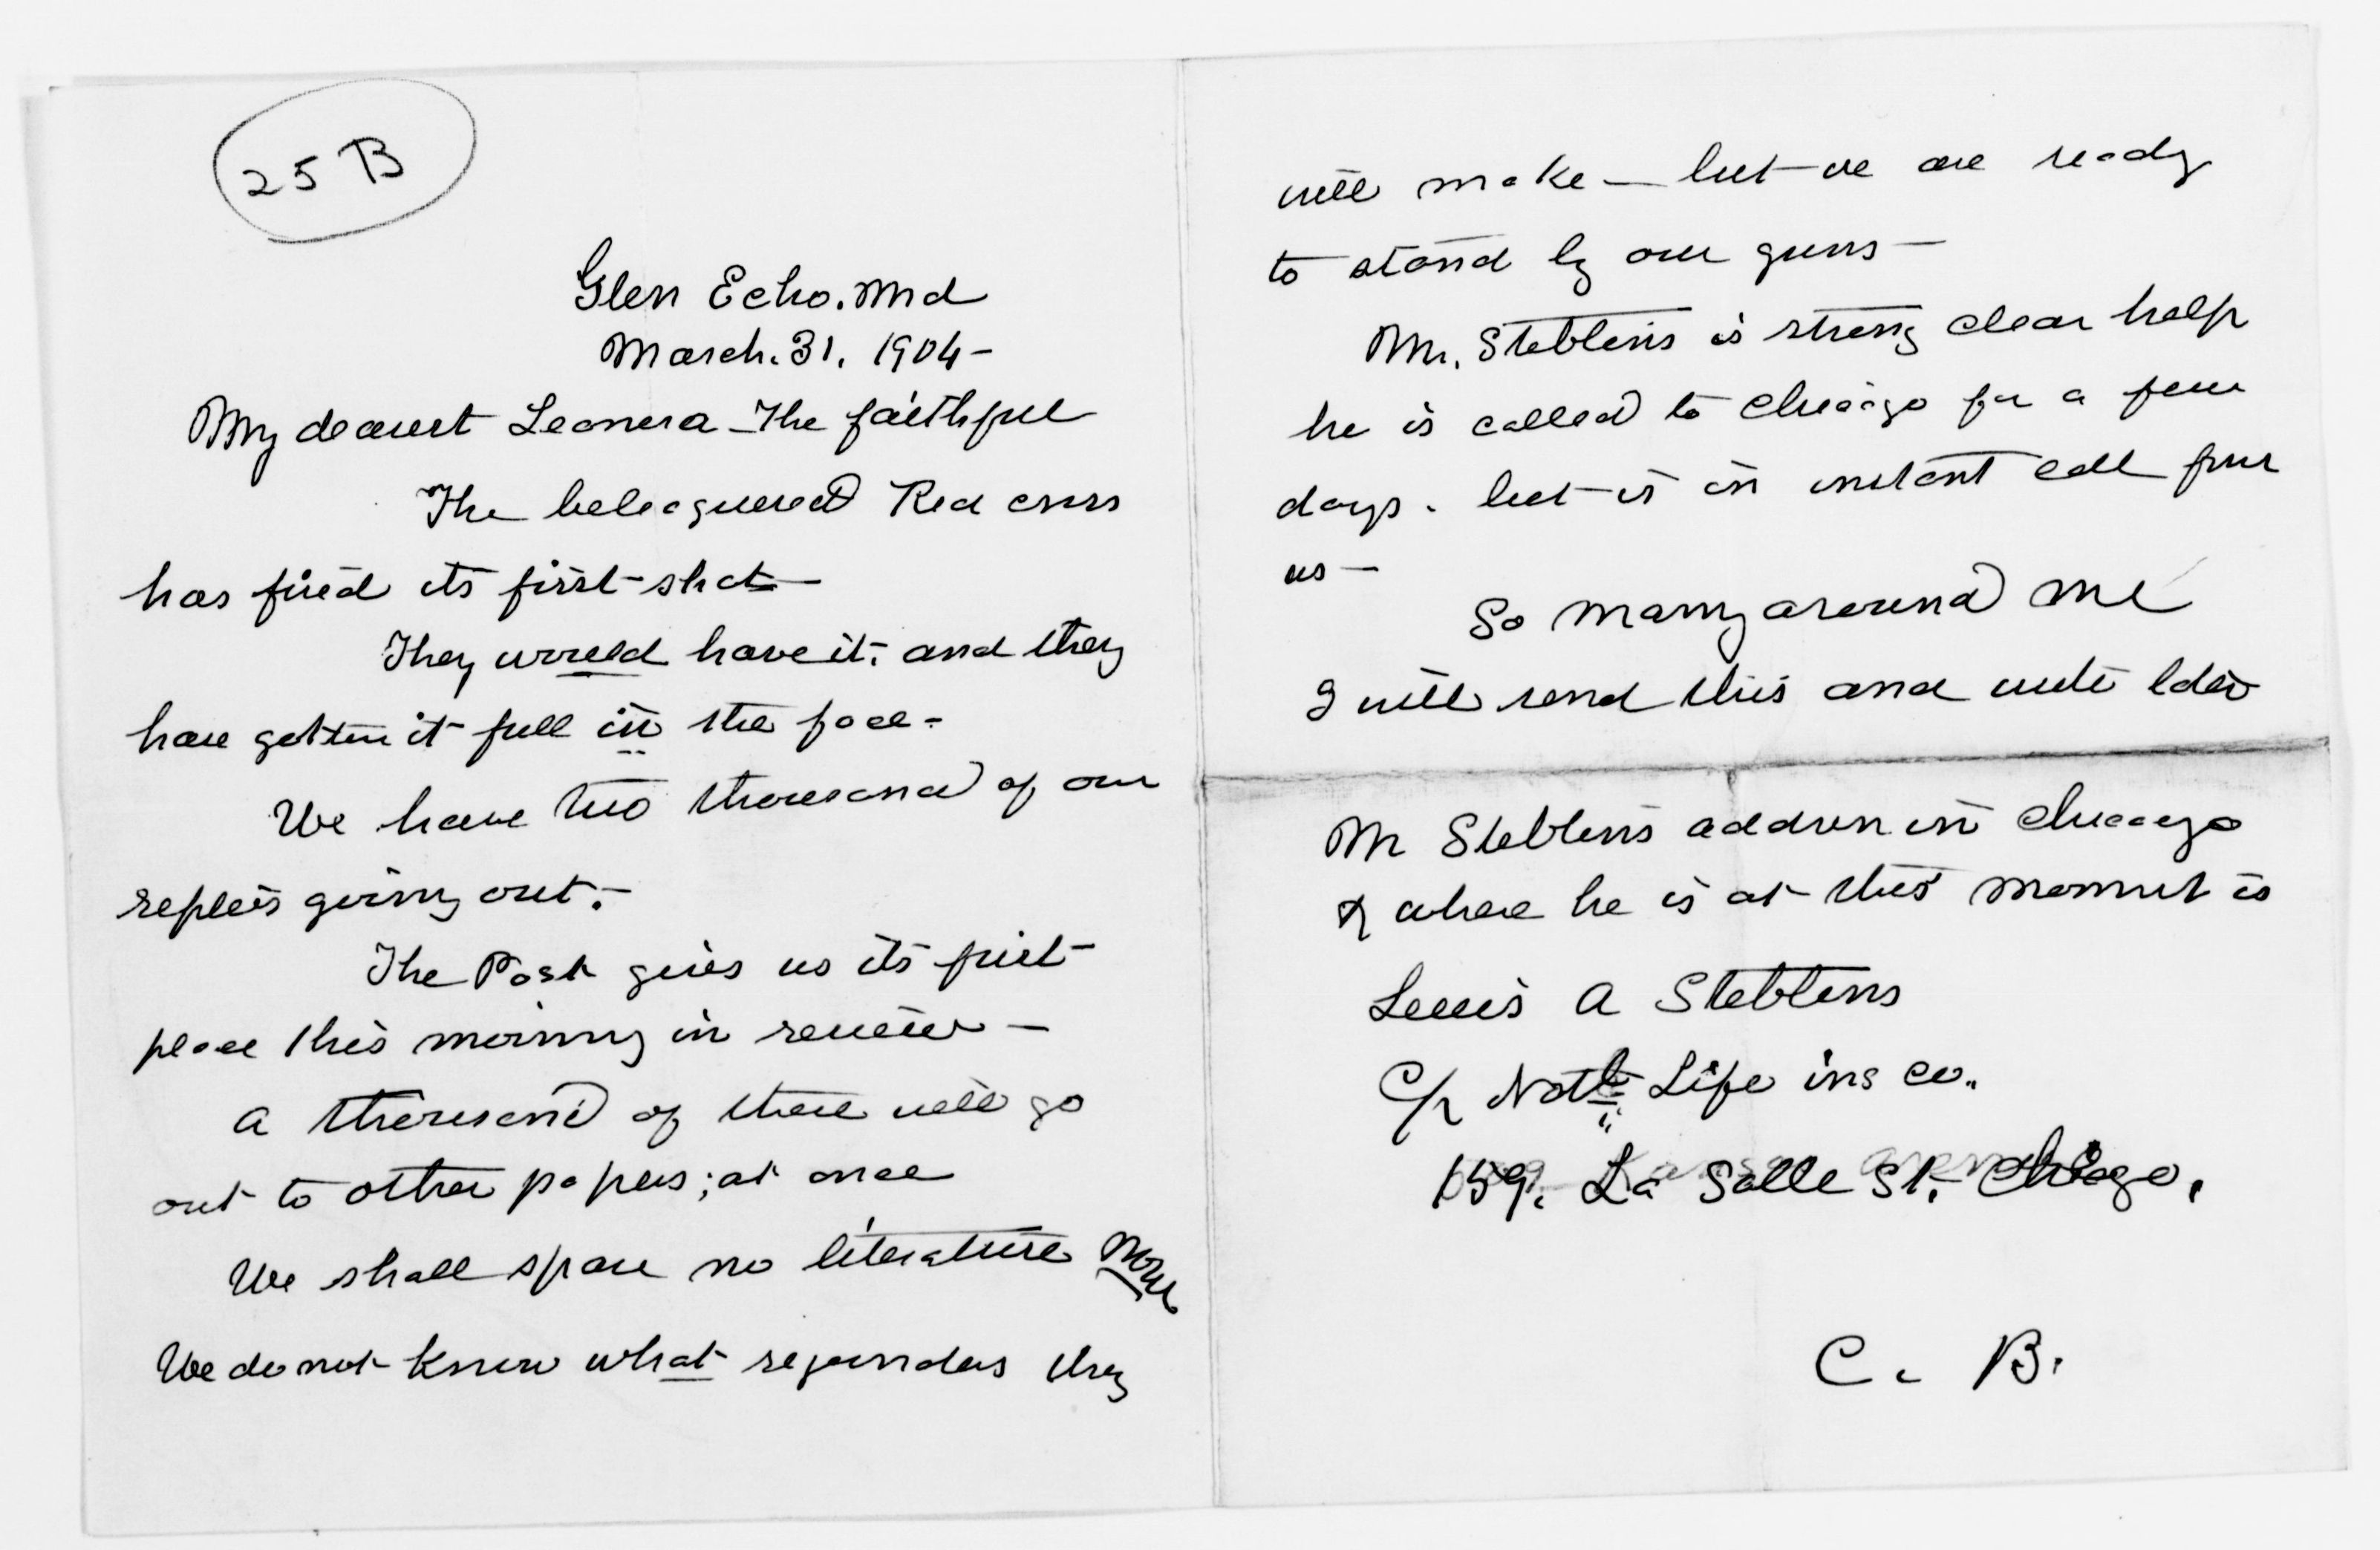 25 B
Glen Echo. Md
March. 31. 1904 -
My dearest Leonora - The faithful
The beleaguered Red cross
has fired its first shot -
They would have it. and they
have gotten it full in the face -
We have two thousand of our
replies going out. -
The Post gives us its first
place this morning in review -
A thousand of these will go
out to other papers; at once
We shall spare no literature now
We do not know what rejoinders they
will make - but we are ready
to stand by our guns -
Mr. Stebbins is strong clear help
he is called to Chicago for a few
days. but is in instant call from
us -
So many around me
I will send this and write later
Mr Stebbins address in Chicago
& where he is at this moment is
Lewis A Stebbins
C/r Natl Life ins co.
159. La Salle St. Chicago.
C. B.